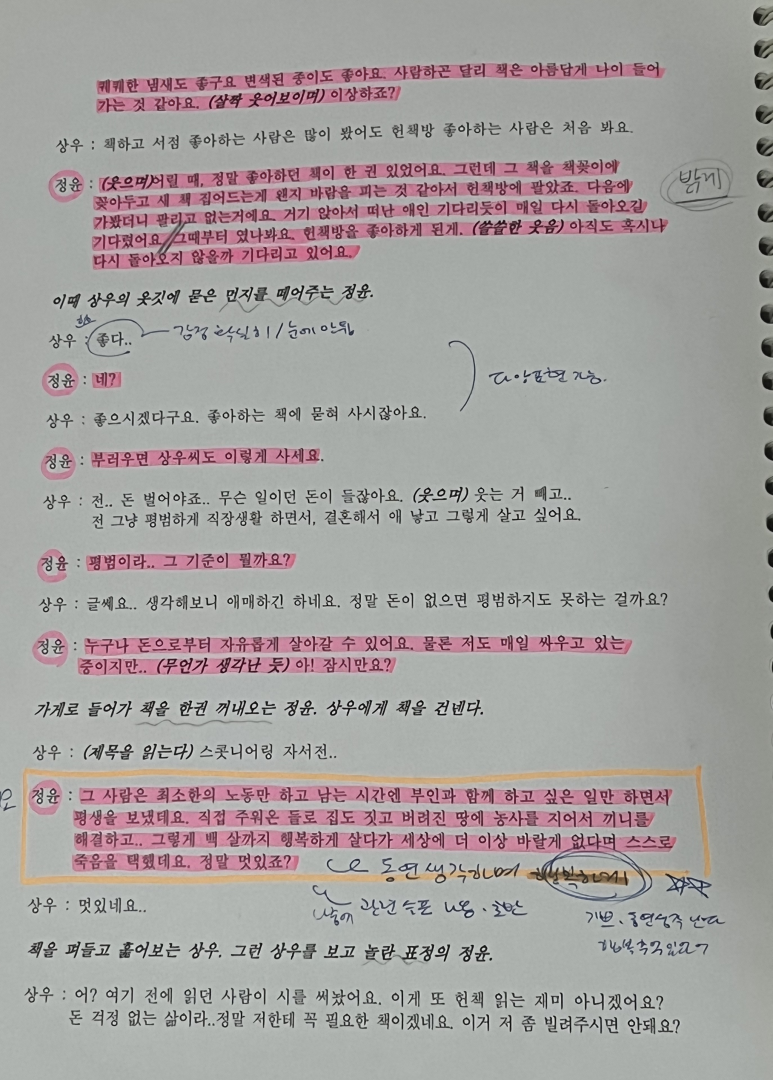 퀘퀘한 냄새도 좋구요 변색된 종이도 좋아요. 사람하곤 달리 책은 아름답게 나이 들어
가는 것 같아요. (살짝 웃어보이며) 이상하죠?
상우 : 책하고 서점 좋아하는 사람은 많이 봤어도 헌책방 좋아하는 사람은 처음 봐요.
정윤 : (웃으며)어릴 때, 정말 좋아하던 책이 한 권 있었어요. 그런데 그 책을 책꽂이에
밝게
꽂아두고 새 책 집어드는게 왠지 바람을 피는 것 같아서 헌책방에 팔았죠. 다음에
가봤더니 팔리고 없는거에요. 거기 앉아서 떠난 애인 기다리듯이 매일 다시 돌아오길
기다렸어요. 그때부터 였나봐요. 헌책방을 좋아하게 된게. (쓸쓸한 웃음) 아직도 혹시나
다시 돌아오지 않을까 기다리고 있어요.
이때 상우의 옷깃에 묻은 먼지를 떼어주는 정윤.
상우 : 좋다.. 감정 확실히 / 눈에 안띔
정윤 : 네?
다양표현 가능.
상우 : 좋으시겠다구요. 좋아하는 책에 묻혀 사시잖아요.
정윤 : 부러우면 상우씨도 이렇게 사세요.
상우 : 전.. 돈 벌어야죠.. 무슨 일이던 돈이 들잖아요. (웃으며) 웃는 거 빼고..
전 그냥 평범하게 직장생활 하면서, 결혼해서 애 낳고 그렇게 살고 싶어요.
정윤 : 평범이라.. 그 기준이 뭘까요?
상우 : 글쎄요.. 생각해보니 애매하긴 하네요. 정말 돈이 없으면 평범하지도 못하는 걸까요?
정윤 : 누구나 돈으로부터 자유롭게 살아갈 수 있어요. 물론 저도 매일 싸우고 있는
중이지만.. (무언가 생각난 듯) 아! 잠시만요?
가게로 들어가 책을 한권 꺼내오는 정윤. 상우에게 책을 건넨다.
상우 : (제목을 읽는다) 스콧니어링 자서전..
정윤 : 그 사람은 최소한의 노동만 하고 남는 시간엔 부인과 함께 하고 싶은 일만 하면서
평생을 보냈데요. 직접 주워온 돌로 집도 짓고 버려진 땅에 농사를 지어서 끼니를
해결하고.. 그렇게 백 살까지 행복하게 살다가 세상에 더 이상 바랄게 없다며 스스로
죽음을 택했데요. 정말 멋있죠?
동연 생각하며 행복하게
상우 : 멋있네요..
책을 펴들고 훑어보는 상우. 그런 상우를 보고 놀란 표정의 정윤.
상우 : 어? 여기 전에 읽던 사람이 시를 써놨어요. 이게 또 헌책 읽는 재미 아니겠어요?
돈 걱정 없는 삶이라..정말 저한테 꼭 필요한 책이겠네요. 이거 저 좀 빌려주시면 안돼요?